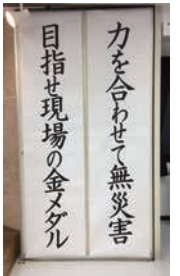 力を合わせて無災害
目指せ現場の金メダル